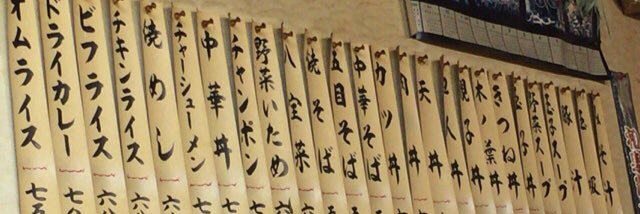 オムライス 七
ドライカレー 七
ビフライス 六
チキンライス 六
焼めし 六
チャーシューメン
中華丼
チャンポン
野菜いため
八宝菜
焼そば
五目そば
中華そば
カツ丼
肉丼
天丼
他人丼
親子丼
木ノ葉丼
きつね丼
玉子丼
野菜スープ
玉子スープ
豚汁